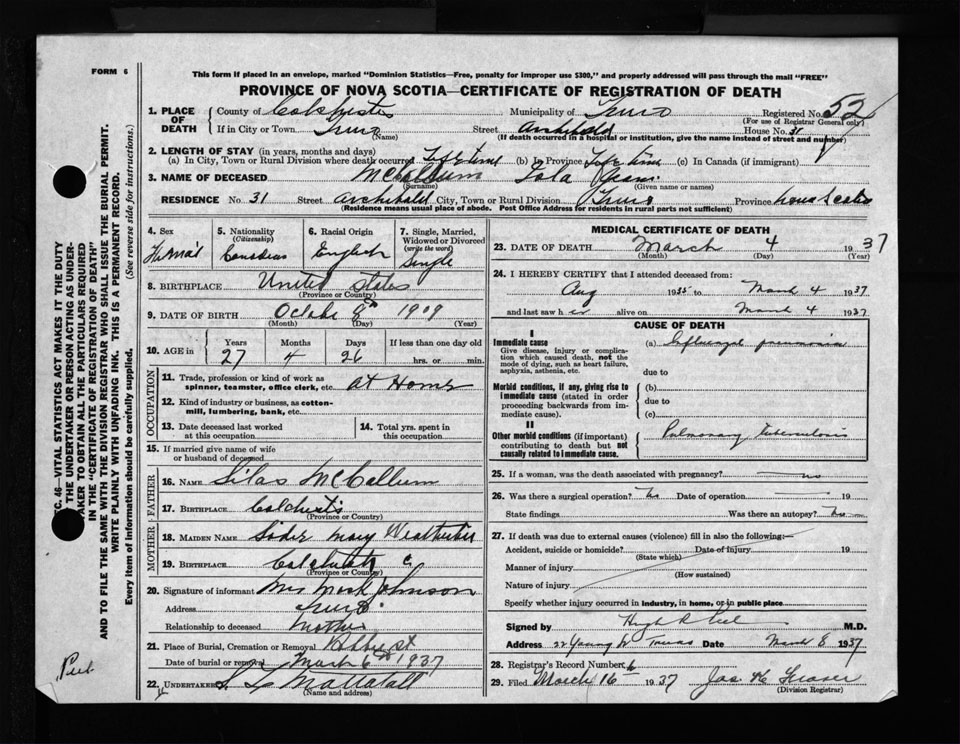 FORM 6
This form if placed in an envelope, marked "Dominion Statistics—Free, penalty for improper use $300," and properly addressed will pass through the mail "FREE"
PROVINCE OF NOVA SCOTIA—CERTIFICATE OF REGISTRATION OF DEATH
TC. 46—VITAL STATISTICS ACT MAKES IT THE DUTY
OF THE UNDERTAKER OR PERSON ACTING AS UNDER-
TAKER TO OBTAIN ALL THE PARTICULARS REQUIRED
IN THE "CERTIFICATE OF REGISTRATION OF DEATH"
AND TO FILE THE SAME WITH THE DIVISION REGISTRAR WHO SHALL ISSUE THE BURIAL PERMIT.
WRITE PLAINLY WITH UNFADING INK. THIS IS A PERMANENT RECORD.
Every item of information should be carefully supplied. (See reverse side for instructions.)
1. PLACE OF DEATH County of Colchester Municipality of Truro Registered No. 52
(For use of Registrar General only)
If in City or Town Truro Street Archibald House No. 31
(Name) (If death occurred in a hospital or institution, give the name instead of street and number)
2. LENGTH OF STAY (in years, months and days)
(a) In City, Town or Rural Division where death occurred Life time (b) in Province Life time (c) In Canada (if immigrant)
3. NAME OF DECEASED McCallum Iola
(Surname) (Given name or names)
RESIDENCE No. 31 Street Archibald City, Town or Rural Division Truro Province Nova Scotia
(Residence means usual place of abode. Post Office Address for residents in rural parts not sufficient)
4. Sex 5. Nationality (Citizenship) 6. Racial Origin 7. Single, Married, Widowed or Divorced (write the word)
Female Canadian English Single
8. BIRTHPLACE United States
(Province or Country)
9. DATE OF BIRTH October 8th 1909
(Month) (Day) (Year)
10. AGE in Years Months Days If less than one day old
27 4 26 hrs. or min.
OCCUPATION
11. Trade, profession or kind of work as spinner, teamster, office clerk, etc. At Home
12. Kind of industry or business, as cotton-mill, lumbering, bank, etc.
13. Date deceased last worked at this occupation 14. Total yrs. spent in this occupation
15. If married give name of wife or husband of deceased
FATHER
16. NAME Silas McCallum
17. BIRTHPLACE Colchester
(Province or Country)
MOTHER
18. MAIDEN NAME Mary Weatherbee
19. BIRTHPLACE Colchester C
(Province or Country)
20. Signature of informant Mrs Mark Johnson
Address Truro
Relationship to deceased Mother
21. Place of Burial, Cremation or Removal Robie st
Date of burial or removal March 6th 1937
22. UNDERTAKER Mattatall
(Name and address)
MEDICAL CERTIFICATE OF DEATH
23. DATE OF DEATH March 4 1937
(Month) (Day)
24. I HEREBY CERTIFY that I attended deceased from:
Aug 1935 to March 4 1937
and last saw her alive on March 4 1937
CAUSE OF DEATH
I
Immediate cause
Give disease, injury or complication which caused death, not the mode of dying, such as heart failure, asphyxia, asthenia, etc.
(a) Influenzal pneumonia
due to
Morbid conditions, if any, giving rise to immediate cause (stated in order proceeding backwards from immediate cause).
(b)
due to
(c)
II
Other morbid conditions (if important) contributing to death but not causally related to immediate cause.
Pulmonary tuberculosis
25. If a woman, was the death associated with pregnancy? no
26. Was there a surgical operation? No Date of operation 19
State findings Was there an autopsy? No
27. If death was due to external causes (violence) fill in also the following:—
Accident, suicide or homicide? Date of Injury 19
(State which)
Manner of injury
(How sustained)
Nature of injury
Specify whether injury occurred in industry, in home, or in public place
Signed by Hugh R Peel M.D.
Address 22 Young St Truro Date March 8 1937
28. Registrar's Record Number 6
29. Filed March 16 1937 Jas. Fraser
(Division Registrar)